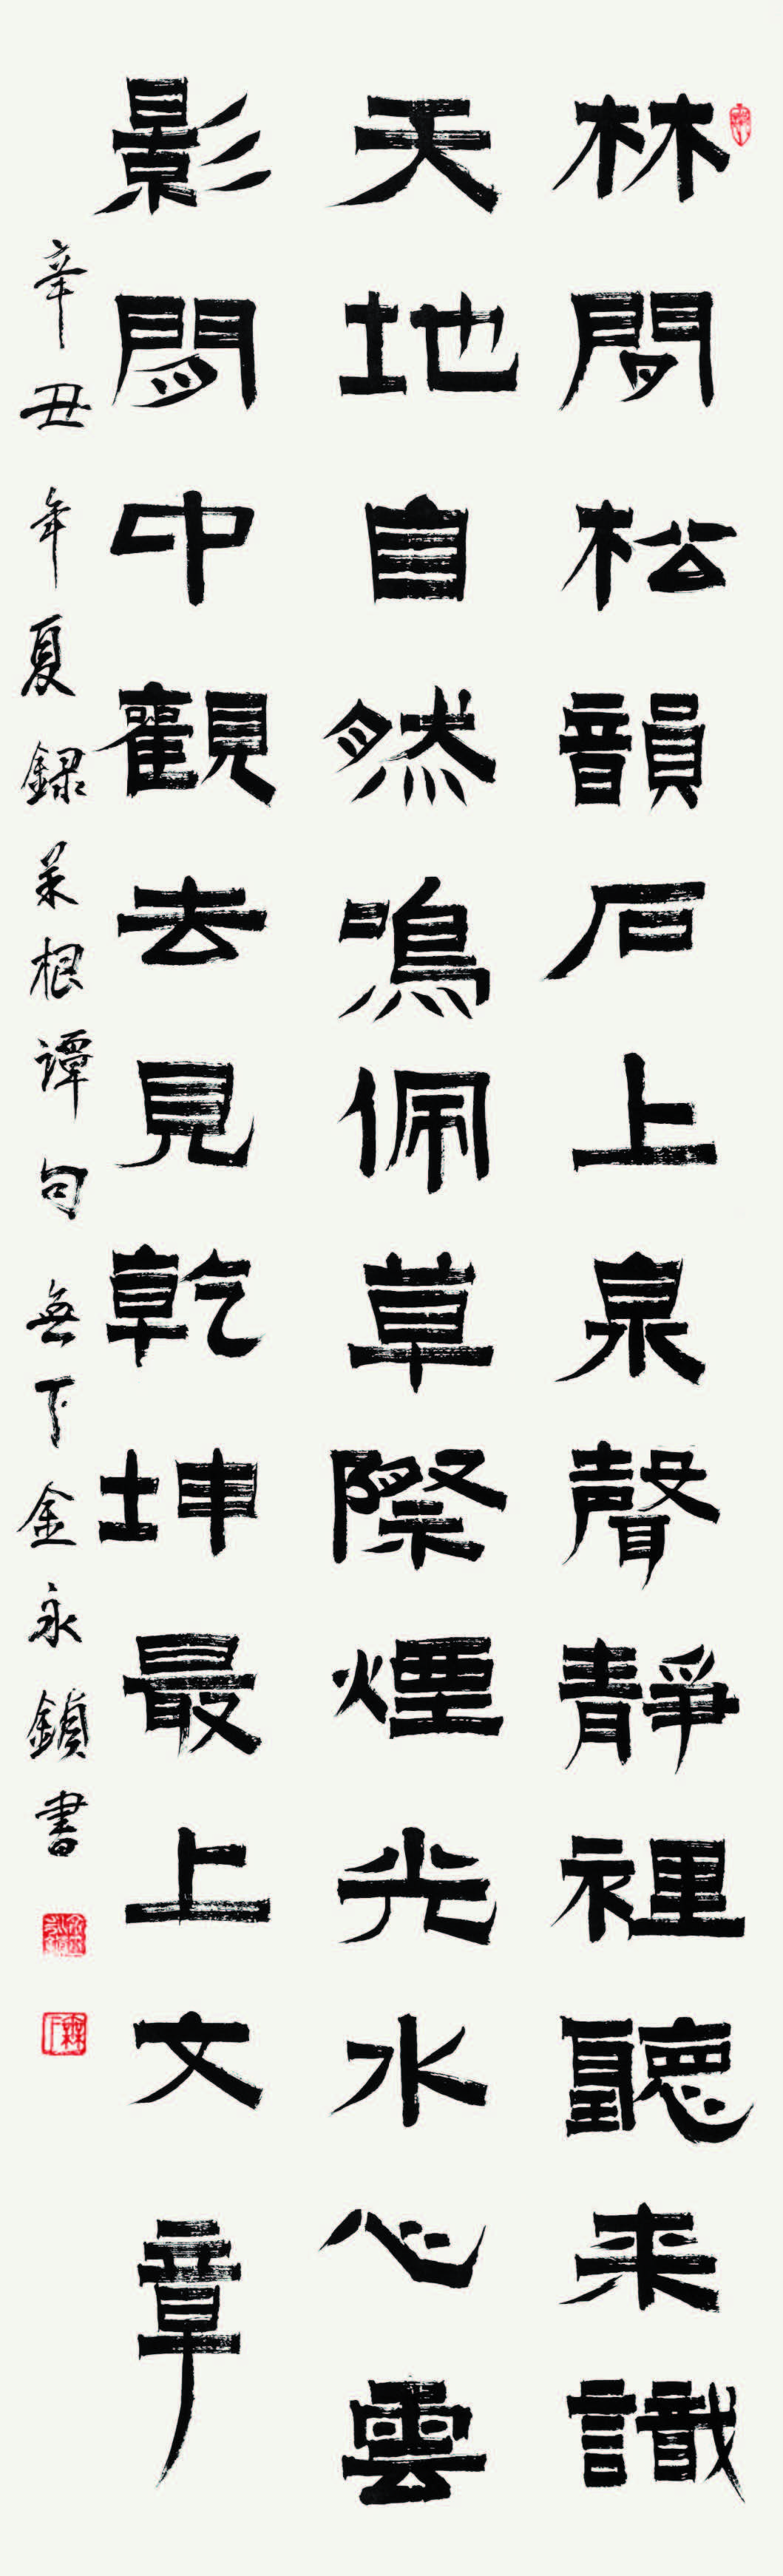 林間松韻石上泉聲靜裡聽来識
天地自然鳴佩草際煙光水心雲
影閒中觀去見乾坤最上文章
辛丑年夏録菜根譚句無下金永鎖書